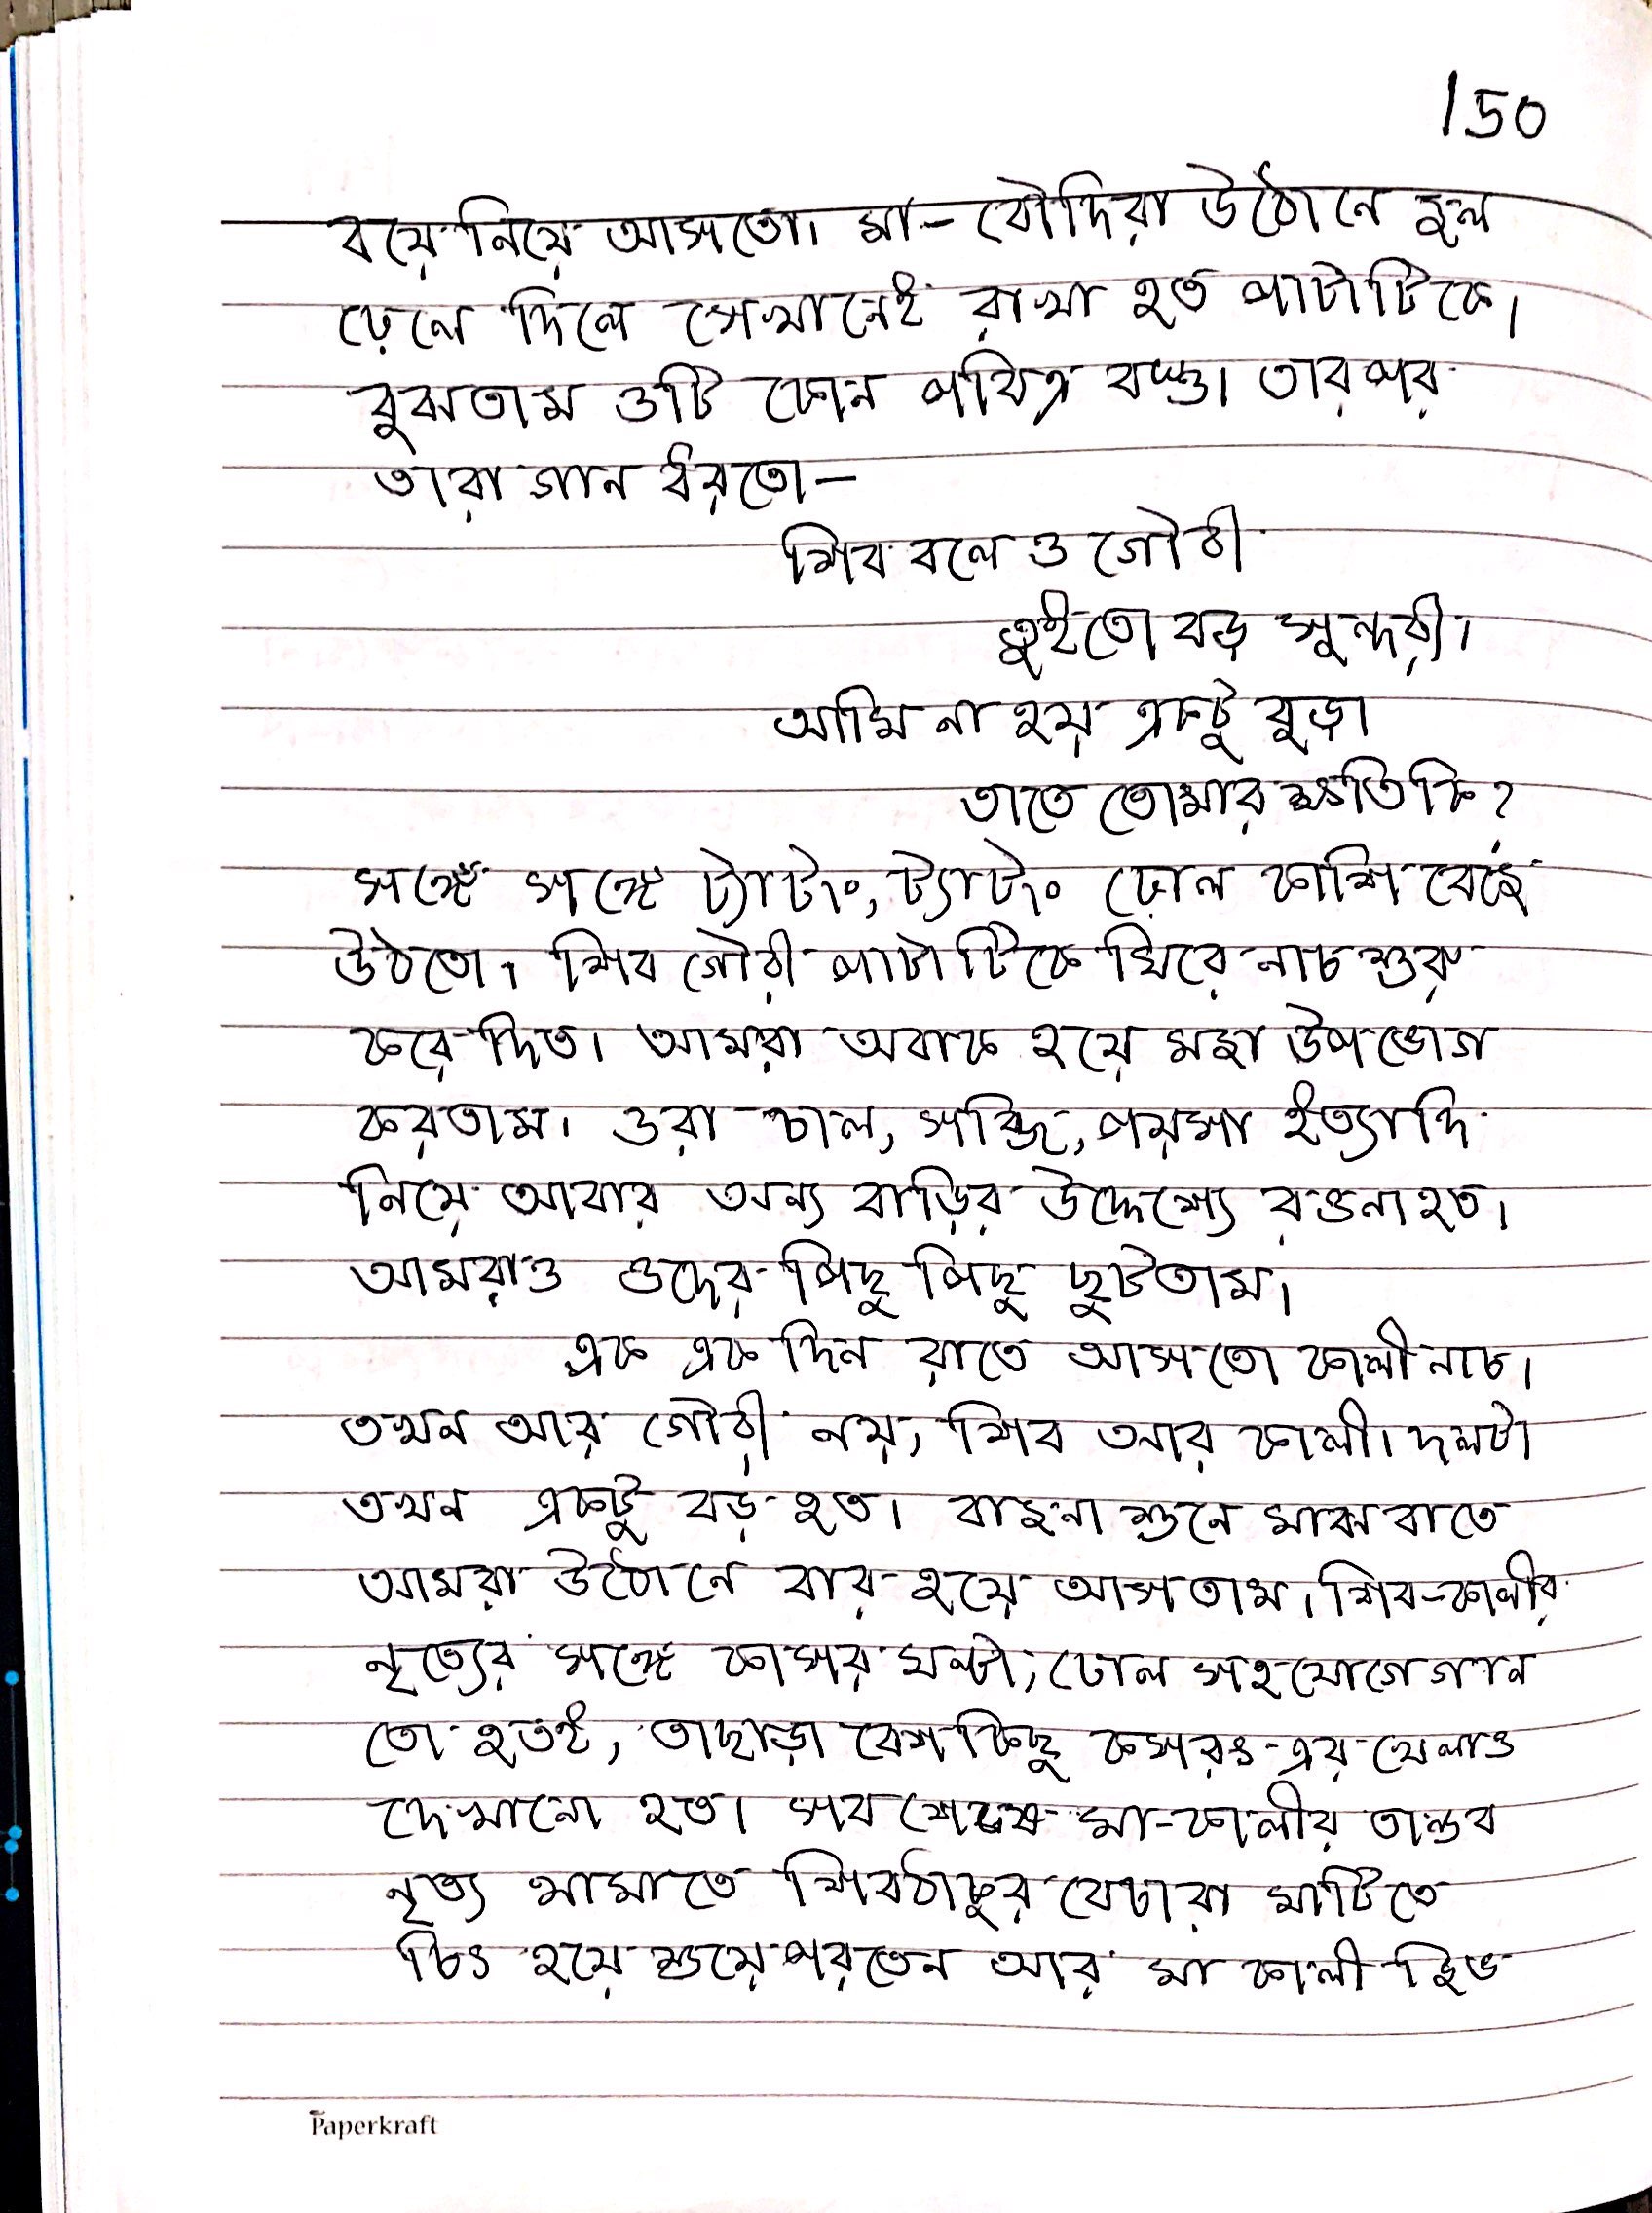 150
বয়ে নিয়ে আসতো। মা-বৌদিরা উঠোনে জল
ঢেলে দিলে সেখানেই রাখা হত পাটাটিকে।
বুঝতাম ওটি কোন পবিত্র বস্তু। তারপর
তারা গান ধরতো—
শিব বলে ও গৌরী
তুইতো বড় সুন্দরী।
আমি না হয় একটু বুড়া
তাতে তোমার ক্ষতি কি?
সঙ্গে সঙ্গে ট্যাটাং, ট্যাটাং ঢোল কাশি বেজে
উঠতো। শিব গৌরী পাটাটিকে ঘিরে নাচ শুরু
করে দিত। আমরা অবাক হয়ে মজা উপভোগ
করতাম। ওরা চাল, সব্জি, পয়সা ইত্যাদি
নিয়ে আবার অন্য বাড়ির উদ্দেশ্যে রওনা হত।
আমরাও ওদের পিছু পিছু ছুটতাম।
এক এক দিন রাতে আসতো কালী নাচ।
তখন আর গৌরী নয়, শিব আর কালী। দলটা
তখন একটু বড় হত। বাজনা শুনে মাঝ রাতে
আমরা উঠোনে বার হয়ে আসতাম। শিব-কালীর
নৃত্যের সঙ্গে কাসর ঘন্টা, ঢোল সহযোগে গান
তো হতই, তাছাড়া বেশ কিছু কসরৎ-এর খেলাও
দেখানো হত। সব শেষে মা-কালীর তান্ডব
নৃত্য থামাতে শিবঠাকুর বেচারা মাটিতে
চিৎ হয়ে শুয়ে পরতেন আর মা কালী জিভ
Paperkraft